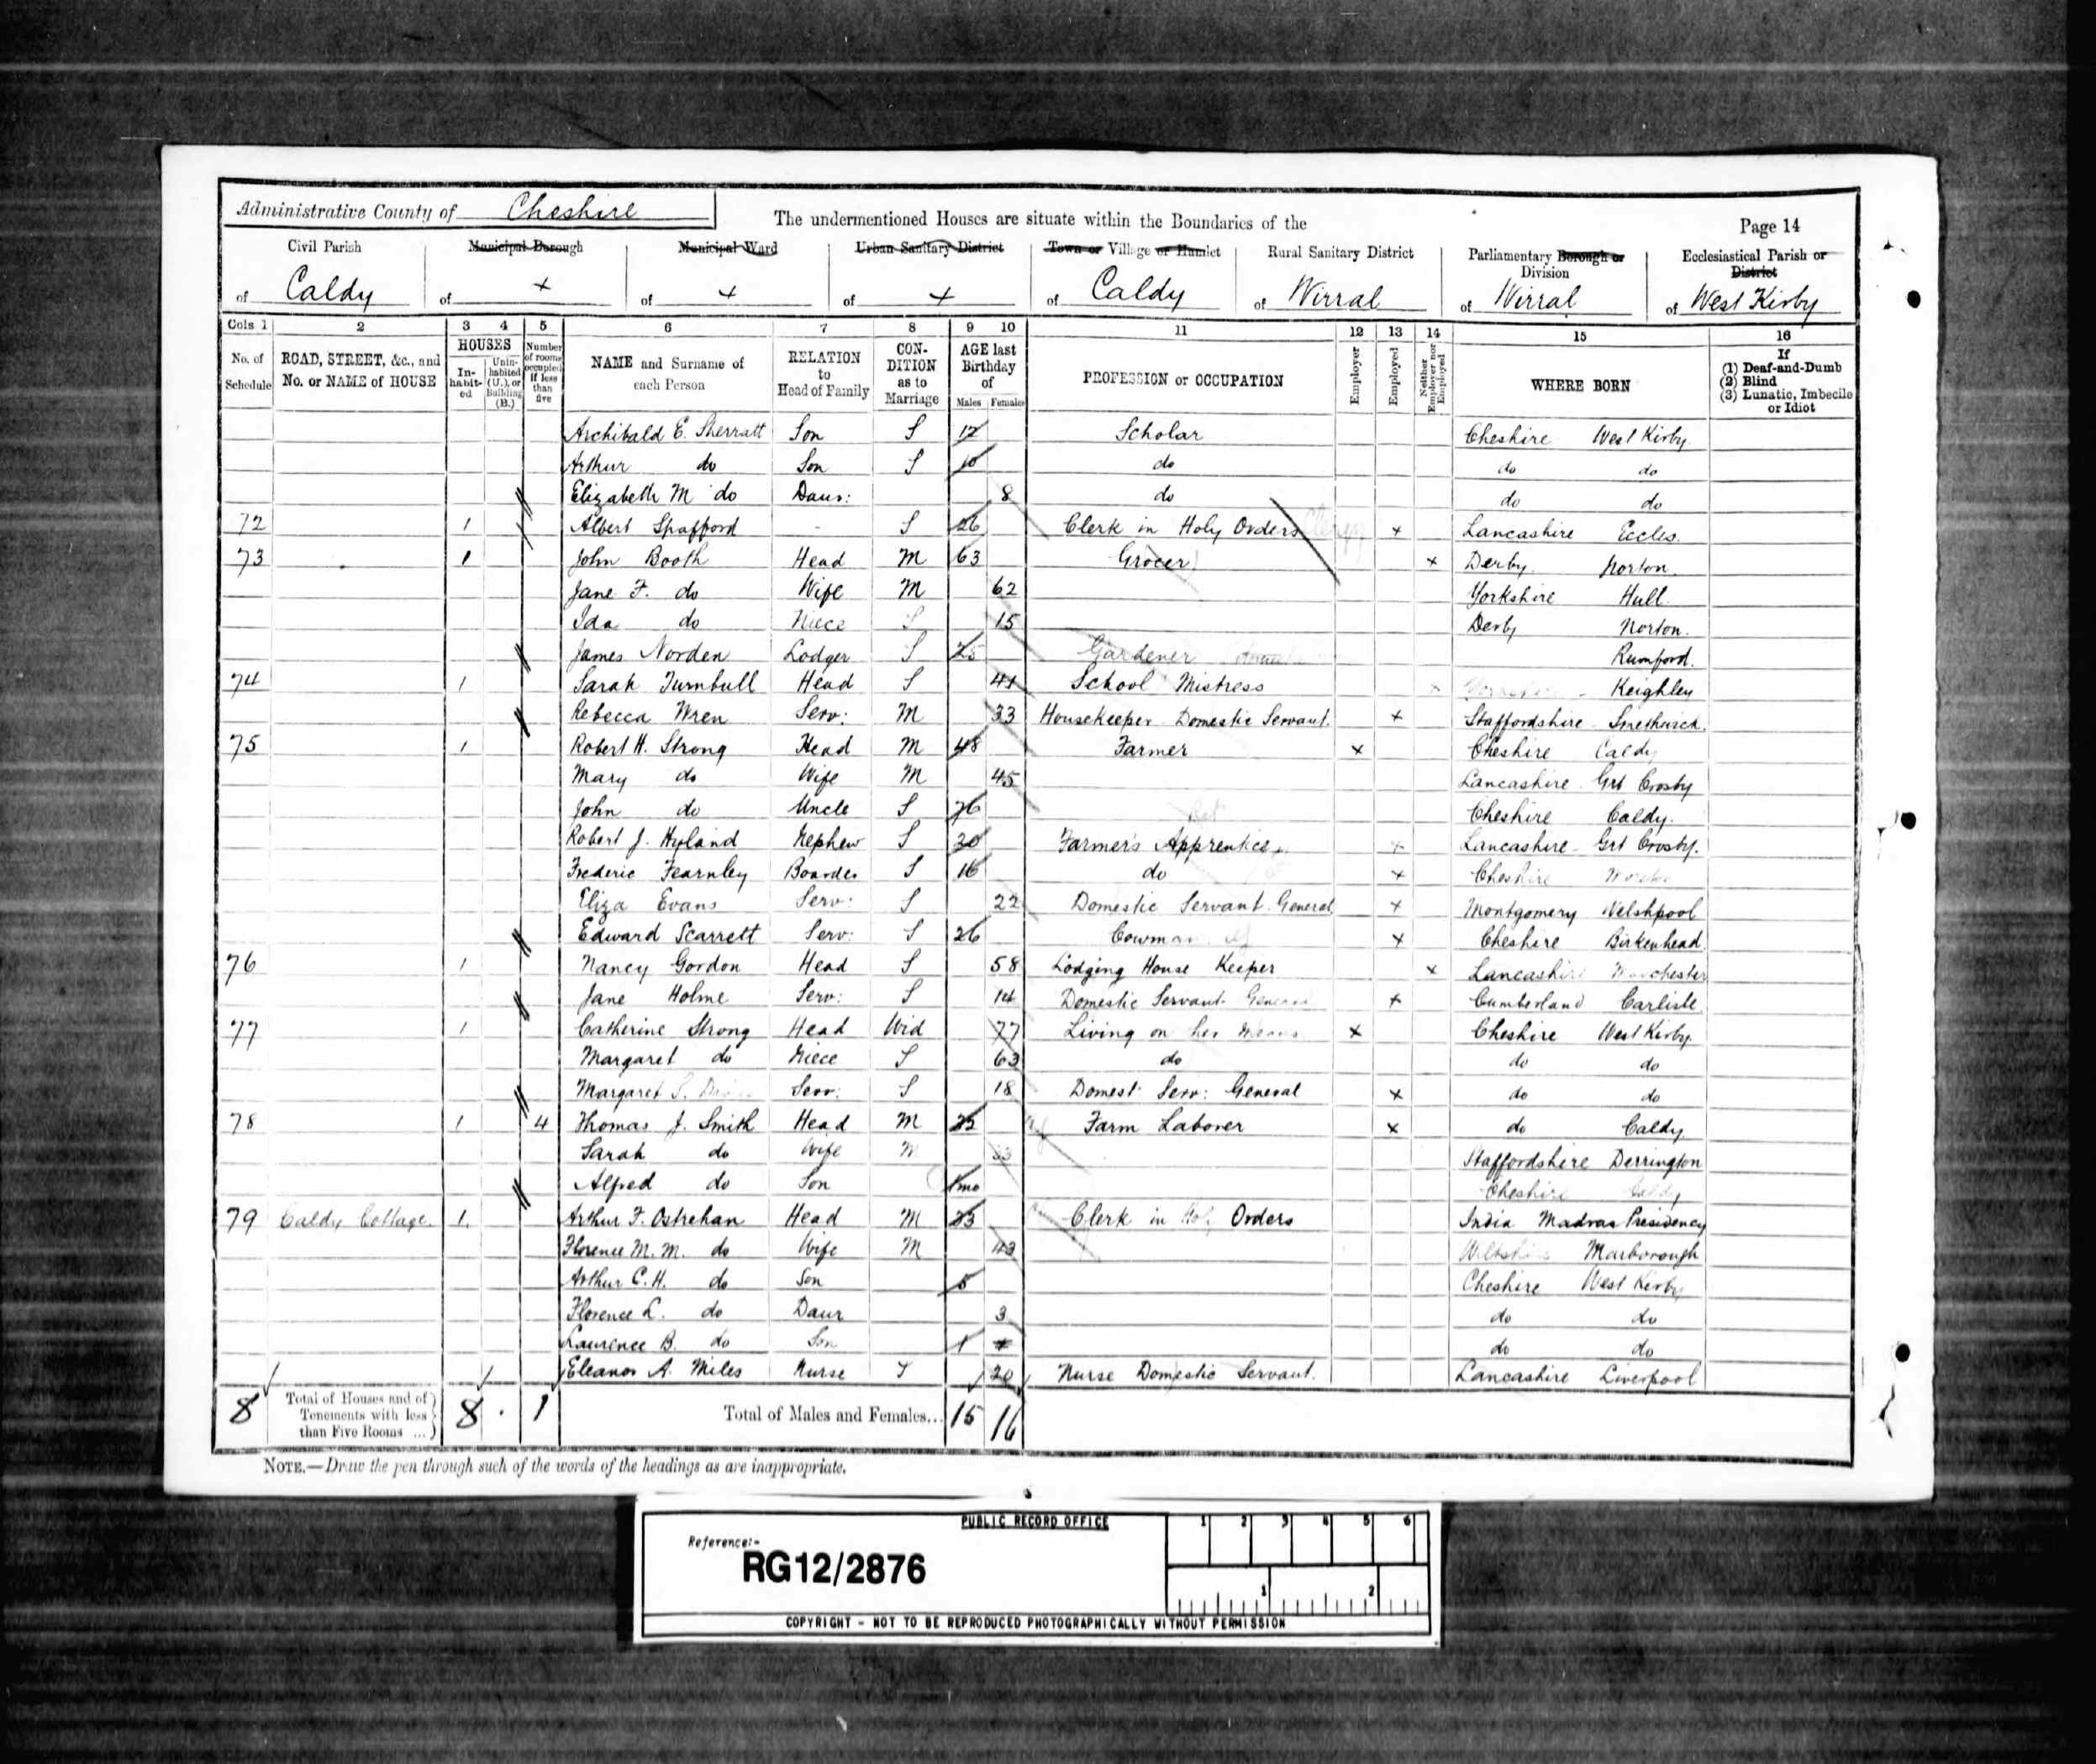 Administrative County of Cheshire
The undermentioned Houses are situate within the Boundaries of the
Page 14
Civil Parish of Caldy
Municipal Borough of x
Municipal Ward of x
Urban Sanitary District of x
Town or Village or Hamlet of Caldy
Rural Sanitary District of Wirral
Parliamentary Borough or Division of Wirral
Ecclesiastical Parish or District of West Kirby
Cols 1 2 3 4 5 6 7 8 9 10 11 12 13 14 15 16
No. of Schedule
ROAD, STREET, &c., and No. or NAME of HOUSE
HOUSES
In-habit-ed
Unin-habited (U.), or Building (B.)
Number of rooms occupied if less than five
NAME and Surname of each Person
RELATION to Head of Family
CON-DITION as to Marriage
AGE last Birthday of
Males Females
PROFESSION or OCCUPATION
Employer
Employed
Neither Employer nor Employed
WHERE BORN
If
(1) Deaf-and-Dumb
(2) Blind
(3) Lunatic, Imbecile or Idiot
Archibald E. Sherratt Son S 12 Scholar Cheshire West Kirby
Arthur do Son S 10 do do do
Elizabeth M do Daur: 8 do do do
72 1 Albert Spafford - S 26 Clerk in Holy Orders Clergy x Lancashire Eccles.
73 1 John Booth Head M 63 Grocer x Derby Norton.
Jane F. do Wife M 62 Yorkshire Hull.
Ida do Niece S 15 Derby Norton.
James Norden Lodger S Gardener Rumford.
74 1 Sarah Turnbull Head S 41 School Mistress x Keighley
Rebecca Wren Serv: M 33 Housekeeper Domestic Servant. x Staffordshire Smethwick.
75 1 Robert H. Strong Head M 48 Farmer x Cheshire Caldy
Mary do Wife M 45 Lancashire Grt Crosby
John do Uncle S 76 Ret Cheshire Caldy.
Robert J. Hyland Nephew S 30 Farmer's Apprentice x Lancashire Grt Crosby.
Frederic Fearnley Boarder S 16 do x Cheshire
Eliza Evans Serv: S 22 Domestic Servant General x Montgomery Welshpool
Edward Scarrett Serv: S 26 Cowman x Cheshire Birkenhead.
76 1 Nancy Gordon Head S 58 Lodging House Keeper x Lancashire Manchester
Jane Holme Serv: S Domestic Servant General x Cumberland Carlisle.
77 1 Catherine Strong Head Wid 77 Living on her means x Cheshire West Kirby.
Margaret do Niece S 63 do do do
Margaret S. Serv: S 18 Domest: Serv: General x do do
78 1 4 Thomas J. Smith Head M Farm Laborer x do Caldy
Sarah do Wife M Staffordshire Derrington
Alfred do Son 1mo Cheshire Caldy
79 Caldy Cottage. 1. Arthur F. Ostrehan Head M Clerk in Holy Orders India Madras Presidency
Florence M. M. do Wife M Wiltshire Marborough
Arthur C. H. do Son 5 Cheshire West Kirby
Florence L. do Daur 3 do do
Laurence B. do Son 1 do do
Eleanor A. Miles Nurse S 20 Nurse Domestic Servant. Lancashire Liverpool
8 Total of Houses and of Tenements with less than Five Rooms ... 8 . 1 Total of Males and Females... 15 16
NOTE.—Draw the pen through such of the words of the headings as are inappropriate.
PUBLIC RECORD OFFICE
1 2 3 4 5 6
Reference:-
RG12/2876
1 2
COPYRIGHT - NOT TO BE REPRODUCED PHOTOGRAPHICALLY WITHOUT PERMISSION